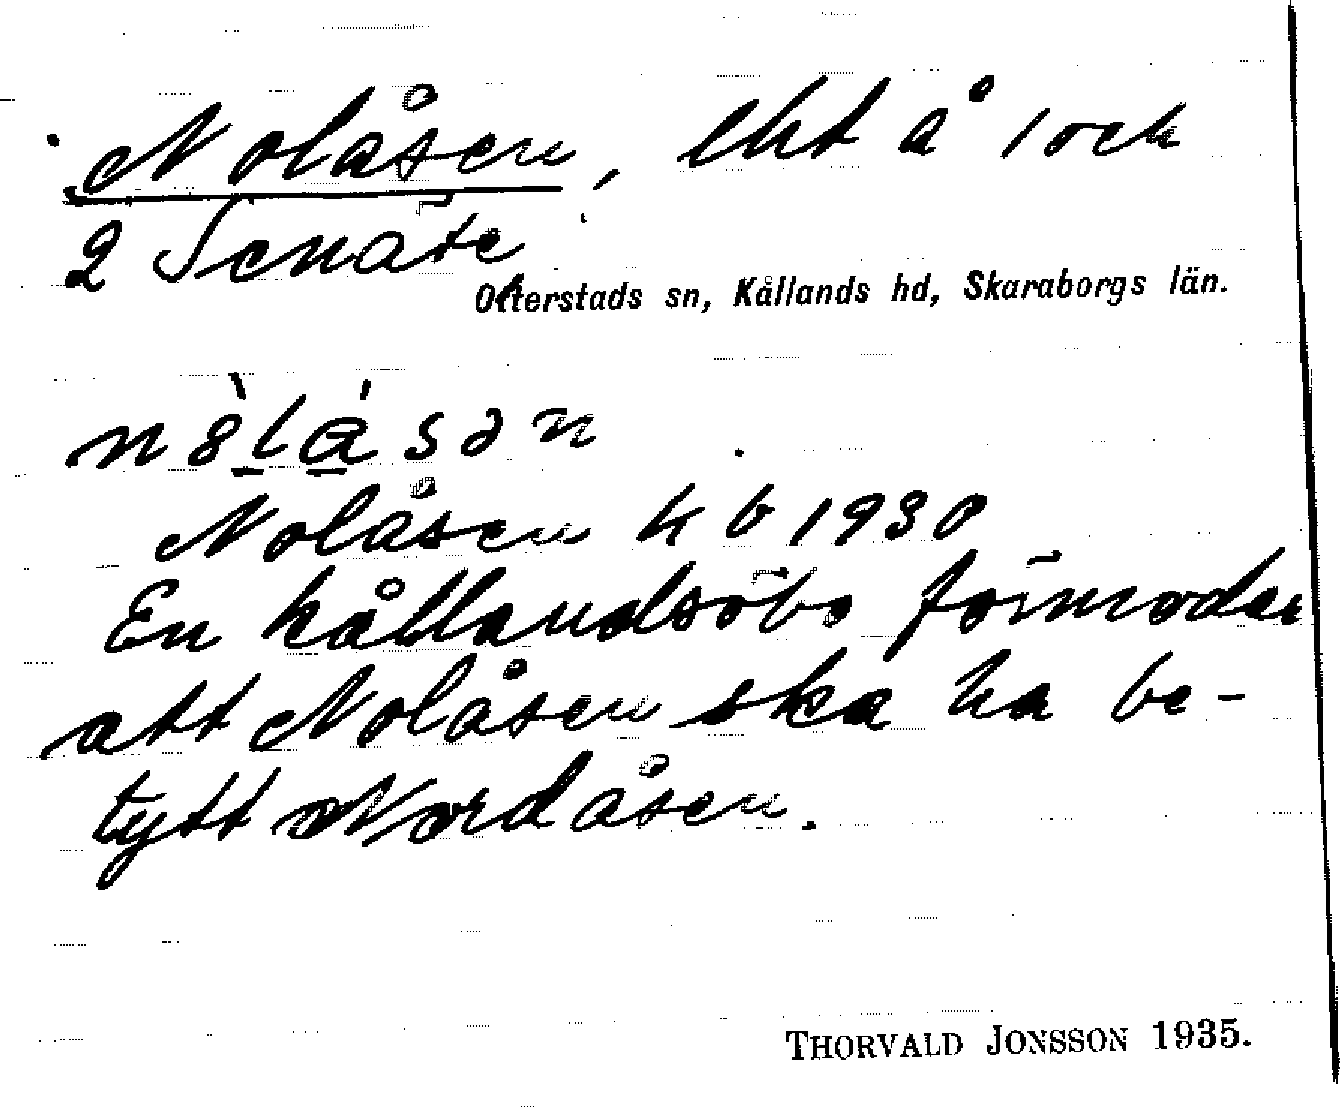 Nolåsen, lht å 1 och
2 Senäte
Otterstads sn, Kållands hd, Skaraborgs län.
Nolåsen kb 1930
En kållandsöbo förmodar
att Nolåsen ska ha be-
tytt Nordåsen.
THORVALD JONSSON 1935.